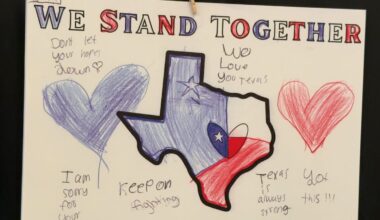 WE STAND TOGETHER
Don't let
your hopes
drown
We
Love
you texas
I am
sorry
for
your
Keep on
fighting
Texas
is
always
strong
You
this!!!